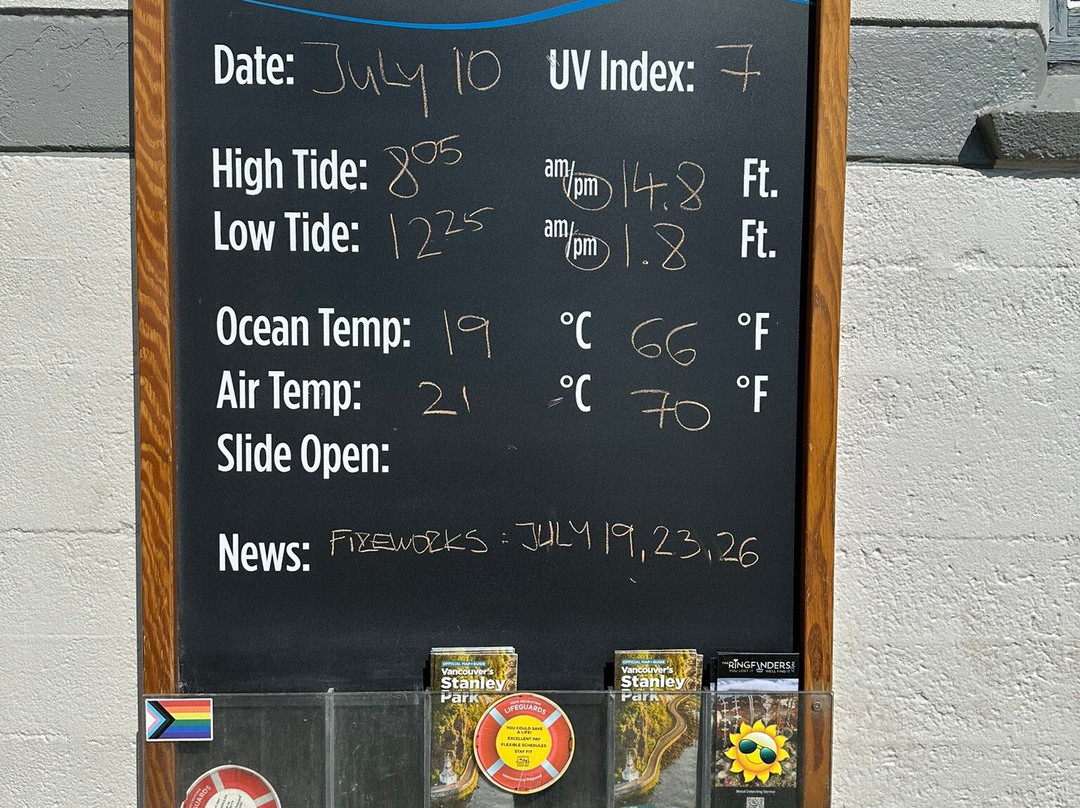 Date: July 10 UV Index: 7
High Tide: 8 05 am/pm 14.8 Ft.
Low Tide: 12 25 am/pm 1.8 Ft.
Ocean Temp: 19 °C 66 °F
Air Temp: 21 °C 70 °F
Slide Open:
News: FIREWORKS : JULY 19, 23, 26
OFFICIAL MAP & GUIDE
Vancouver's
Stanley
Park
LIFEGUARDS
YOU COULD SAVE
A LIFE!
EXCELLENT PAY
FLEXIBLE SCHEDULES
STAY FIT
OFFICIAL MAP & GUIDE
Vancouver's
Stanley
Park
THE RINGFINDERS
Metal Detecting Service